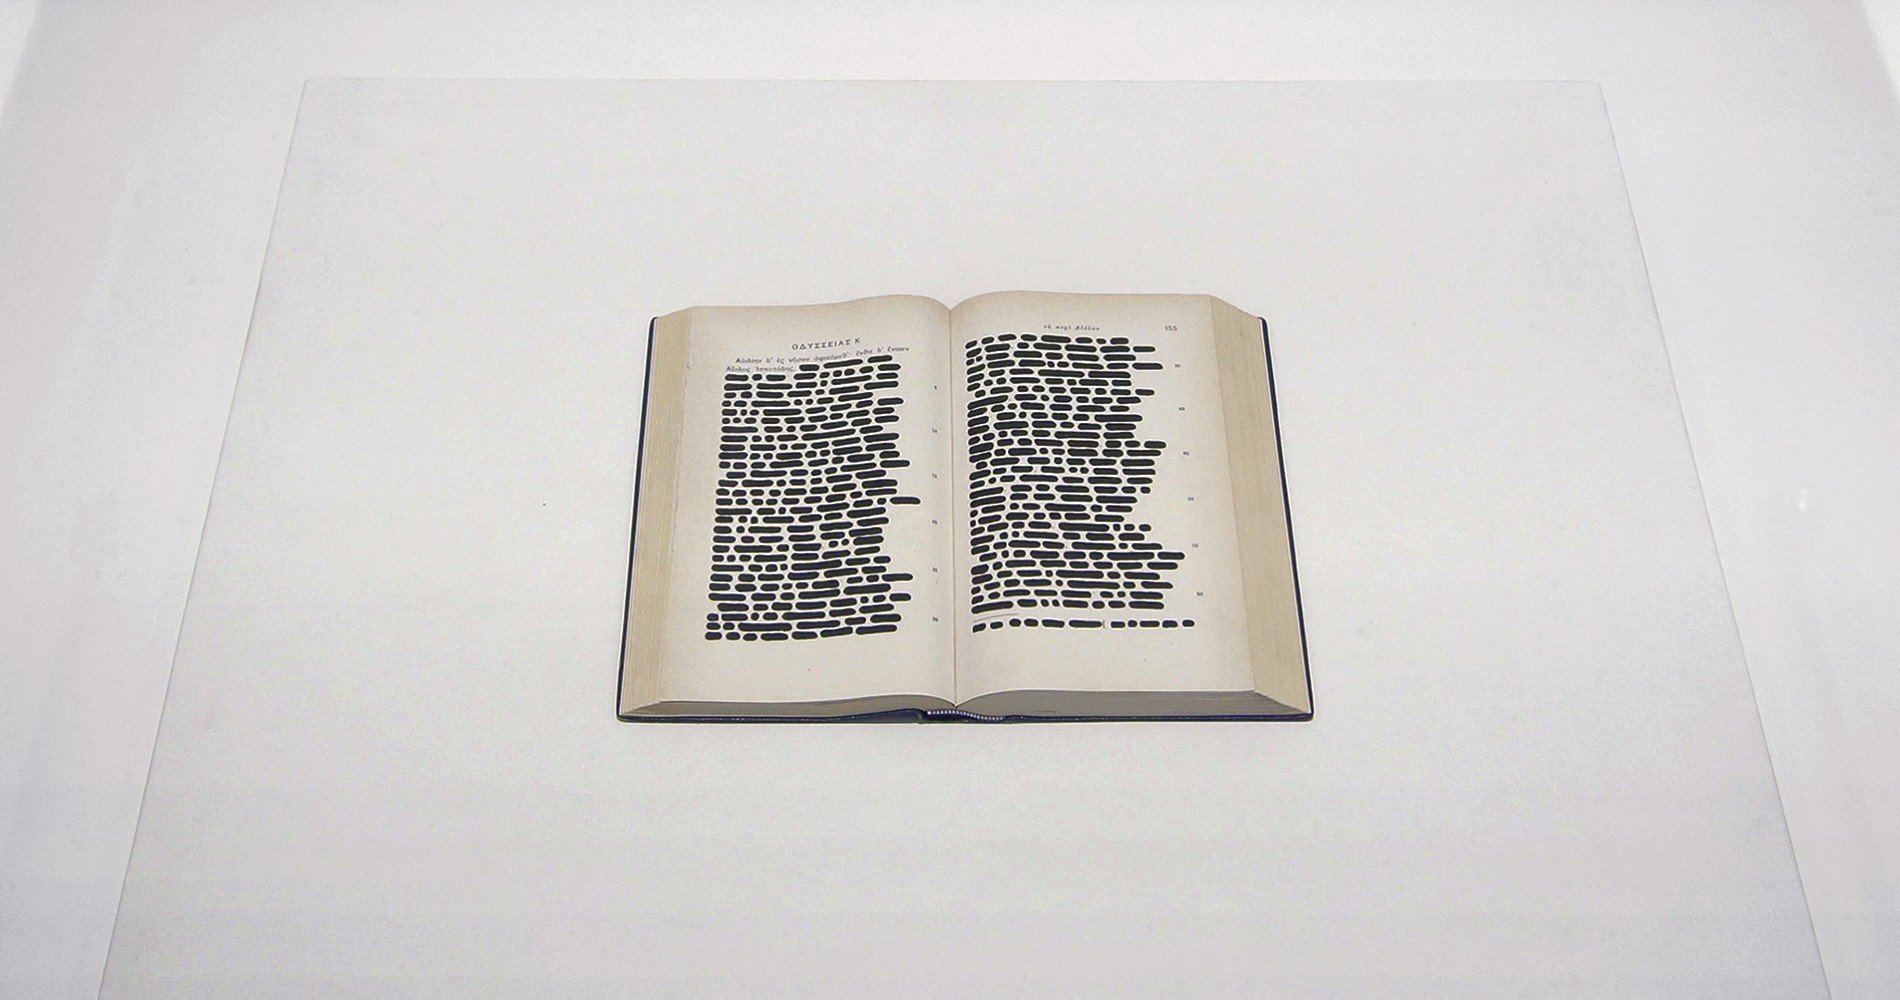 ΟΔΥΣΣΕΙΑΣ Κ
Αἰολίην δ' ἐς νῆσον ἀφικόμεθ'· ἔνθα δ' ἔναιεν
Αἴολος Ἱπποτάδης,
5
10
15
25
30
τὰ περὶ Αἰόλου
155
35
40
45
50
55
60